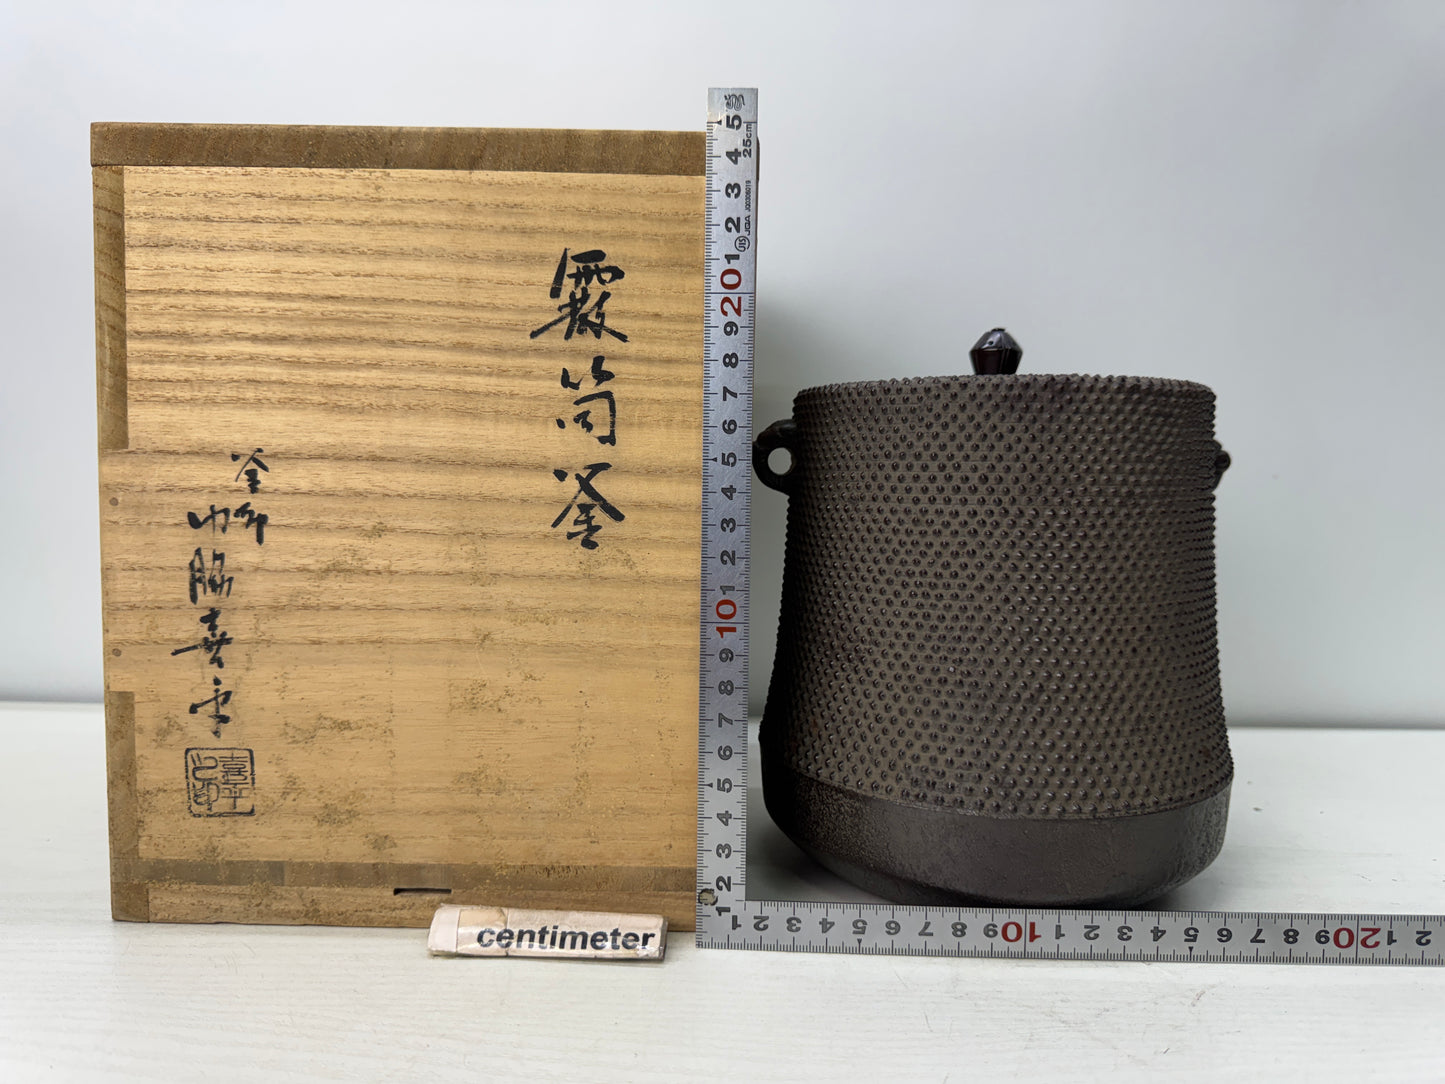 霰筒釜
釜師
脇喜平
喜平之印
centimeter
1 2 3 4 5 6 7 8 9 10 1 2 3 4 5 6 7 8 9 20 1 2 3 4 5
25cm
JIS JQA JQ0306019
1 2 3 4 5 6 7 8 9 10 1 2 3 4 5 6 7 8 9 20 1 2